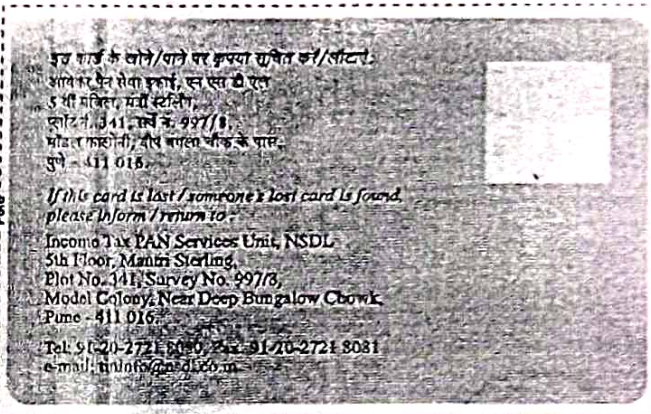 इस कार्ड के खोने/पाने पर कृपया सूचित करें/लौटाएं:
आयकर पैन सेवा इकाई, एन एस डी एल
5 वी मंजिल, मंत्री स्टर्लिंग,
प्लॉट नं. 341, सर्वे नं. 997/8,
मॉडल कालोनी, दीप बंगला चौक के पास,
पुणे - 411 016.
If this card is lost / someone's lost card is found,
please inform / return to :
Income Tax PAN Services Unit, NSDL
5th Floor, Mantri Sterling,
Plot No. 341, Survey No. 997/8,
Model Colony, Near Deep Bungalow Chowk,
Pune - 411 016.
Tel: 91-20-2721 8080, Fax: 91-20-2721 8081
e-mail: tininfo@nsdl.co.in